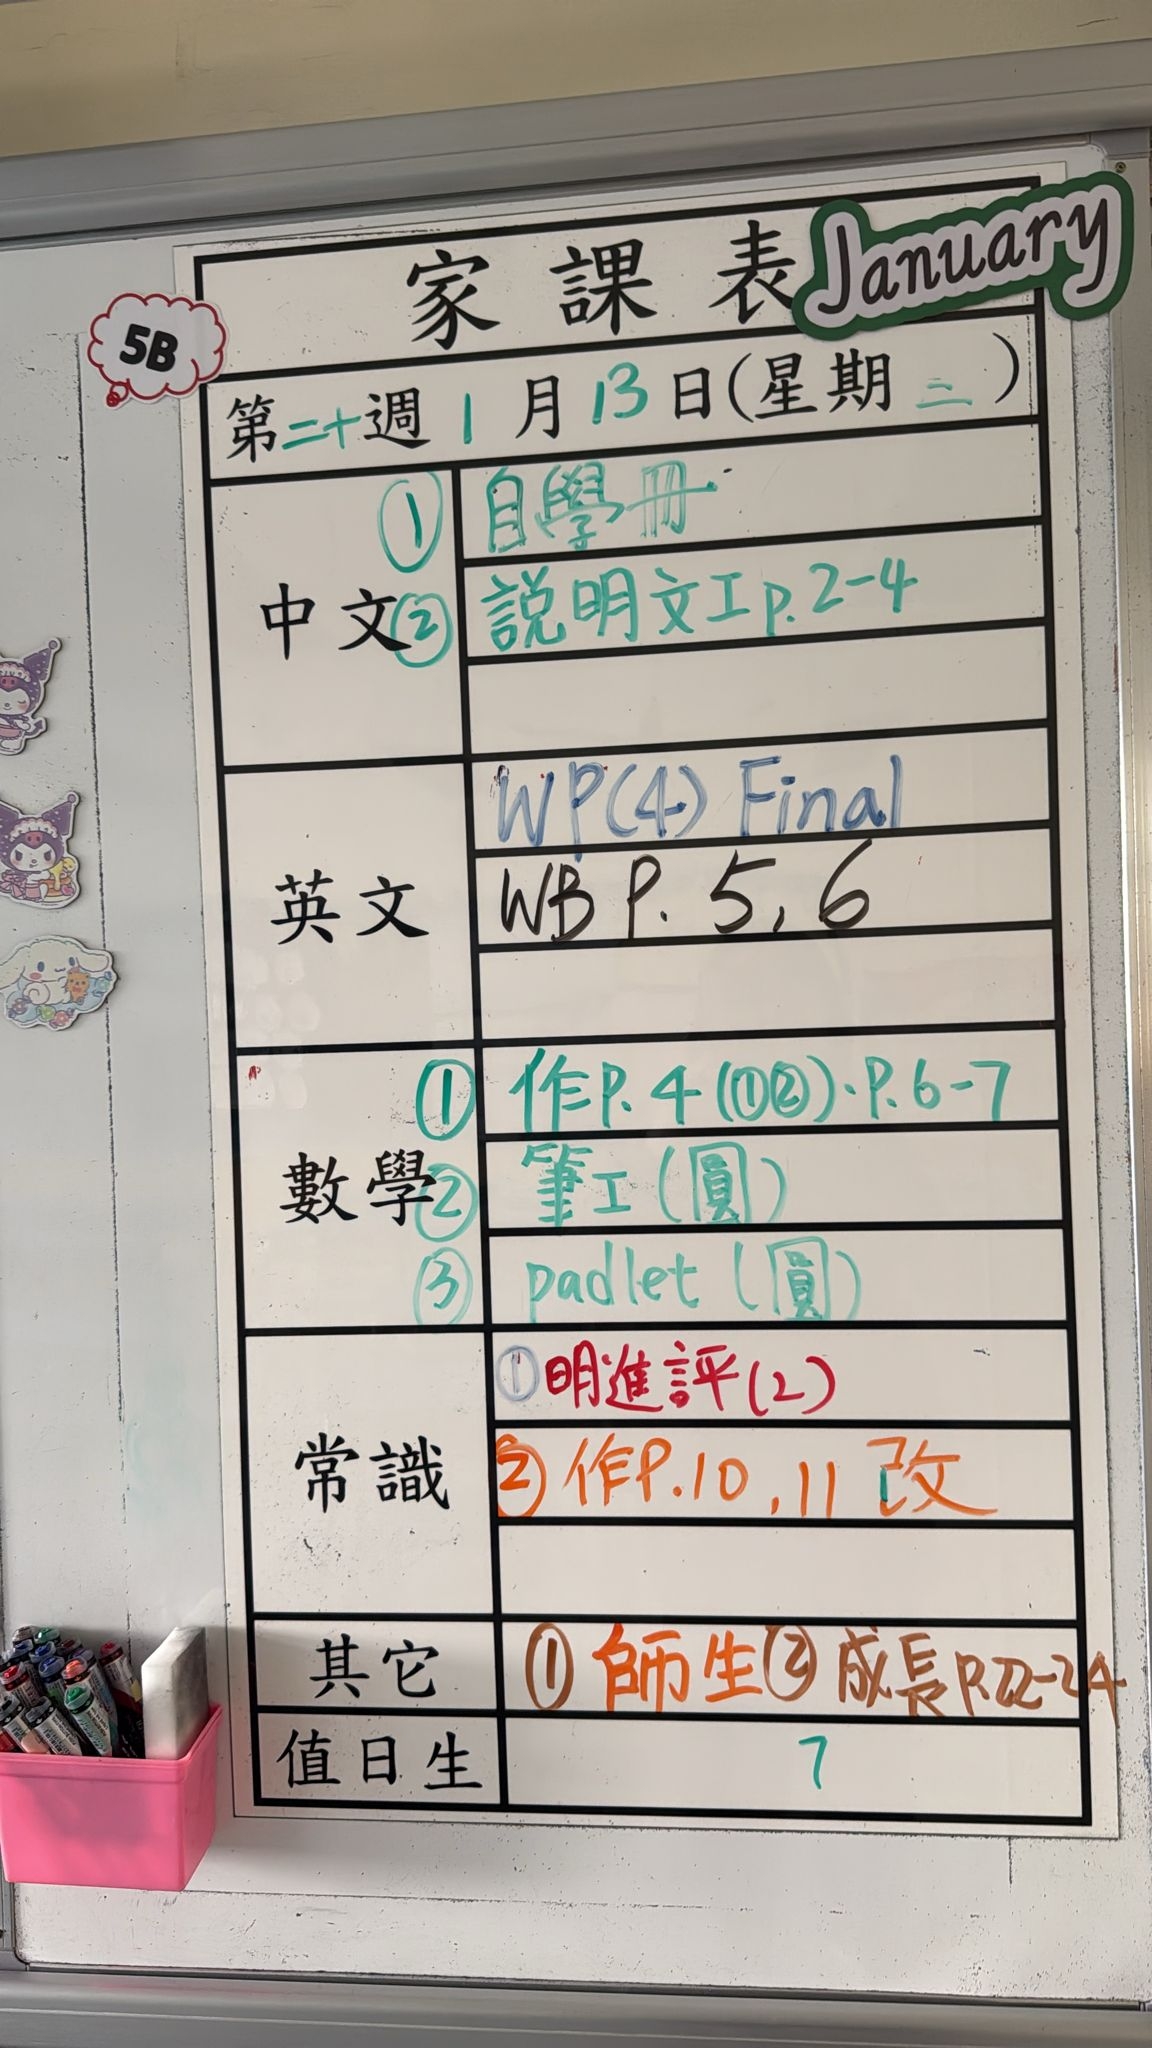 家課表 January
5B
第二十週 1月13日(星期二)
中文
① 自學冊
② 說明文工p.2-4
英文
WP(4) Final
WB P. 5, 6
數學
① 作P.4(①②)·P.6-7
② 筆工(圓)
③ padlet (圓)
常識
①明進評(2)
②作P.10,11 改
其它
①師生②成長P.22-24
值日生
7